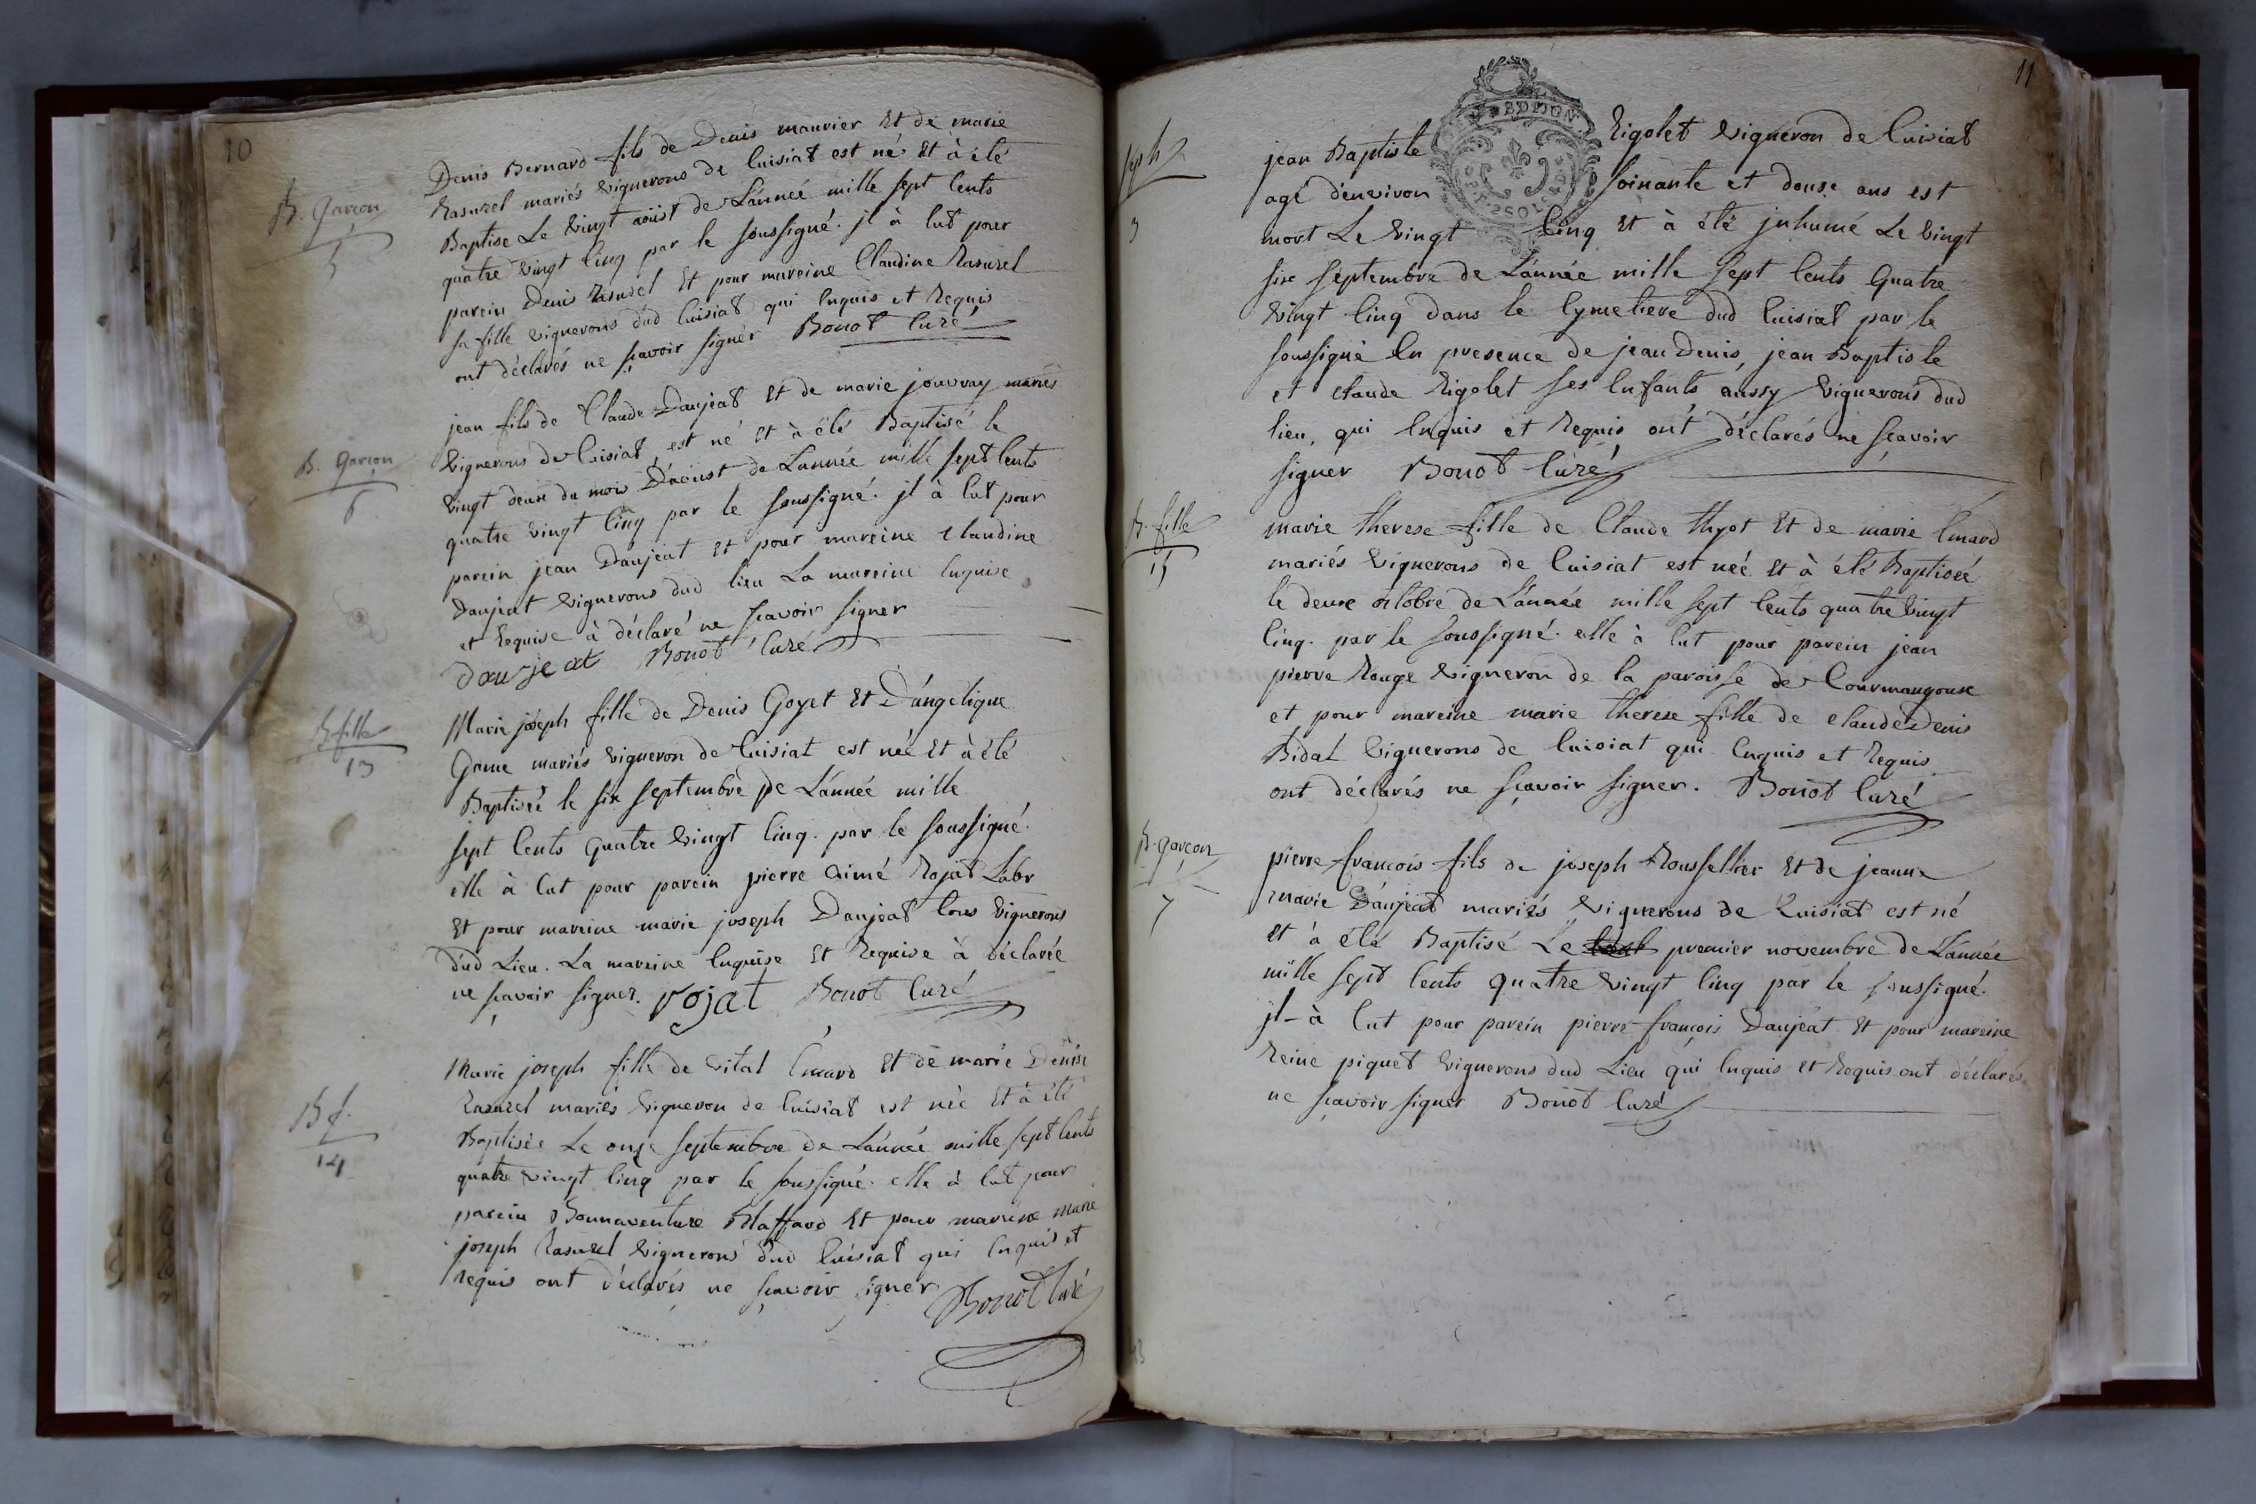 10
B. Garcon
5
Denis Bernard fils de Denis maurier Et de marie
Rasurel mariés vignerons de Cuisiat est né Et à été
Baptisé Le vingt aoüst de L'année mille sept Cents
quatre vingt Cinq par le soussigné. jl à Eut pour
parein Denis Rasurel Et pour mareine Claudine Rasurel
sa fille vignerons dud Cuisiat qui Enquis et Requis
ont déclarés ne sçavoir signer Bonot Curé
B. Garçon
6
jean fils de Claude Daujeat Et de marie jouvray mariés
vignerons de Cuisiat est né Et à été Baptisé le
vingt deux du mois D'aoust de L'année mille sept Cents
quatre vingt Cinq par le soussigné. jl à Eut pour
parein jean Daujeat Et pour mareine Claudine
Daujeat vignerons dud lieu La mareine Enquise
et Requise à déclaré ne sçavoir signer
daujeat Bonot Curé
B. fille
13
Marie joseph fille de Denis Goyet Et D'angelique
Game mariés vigneron de Cuisiat est née Et à été
Baptiséé le six septembre de L'année mille
sept Cents quatre vingt Cinq. par le soussigné.
elle à Eut pour parein pierre aimé Rojat Labr
Et pour mareine marie joseph Daujeat tous vignerons
dud Lieu. La mareine Enquise Et Requise à déclarée
ne sçavoir signer. rojat Bonot Curé
B f.
14
Marie joseph fille de vital Emard Et de marie Denise
Rasurel mariés vigneron de Cuisiat est née Et à été
Baptisée Le onze septembre de L'année mille sept Cents
quatre vingt Cinq par le soussigné. elle à Eut pour
parein Bonnaventure Blaffard Et pour mareine marie
joseph Rasurel vignerons dud Cuisiat qui Enquis et
Requis ont déclarés ne sçavoir signer Bonot Curé
11
seph
3
jean Baptiste Rigolet vigneron de Cuisiat
agé d'environ soixante et douse ans est
mort Le vingt Cinq Et à été jnhumé Le vingt
six septembre de L'année mille sept Cents quatre
vingt Cinq dans le Cymetiere dud Cuisiat par le
soussigné En presence de jean Denis, jean Baptiste
et claude Rigolet ses Enfants aussy vignerons dud
lieu, qui Enquis et Requis ont déclarés ne sçavoir
signer Bonot Curé
B. fille
15
marie therese fille de Claude thyot Et de marie Emard
mariés vignerons de Cuisiat est néé Et à été Baptiséé
le deux octobre de L'année mille sept Cents quatre vingt
Cinq. par le soussigné. elle à Eut pour parein jean
pierre Rouge vigneron de la paroisse de Courmangoux
et pour mareine marie therese fille de claude Denis
Bidat vignerons de Cuisiat qui Enquis et Requis
ont déclarés ne sçavoir signer. Bonot Curé
B. garcon
7
pierre francois fils de joseph Roussellier Et de jeanne
marie Daujeat mariés vignerons de Cuisiat est né
Et à été Baptisé Le premier novembre de L'année
mille sept Cents quatre vingt Cinq par le soussigné.
jl à Eut pour parein pierre françois Daujeat Et pour mareine
Reine piquet vignerons dud Lieu qui Enquis et Requis ont déclarés
ne sçavoir signer Bonot Curé